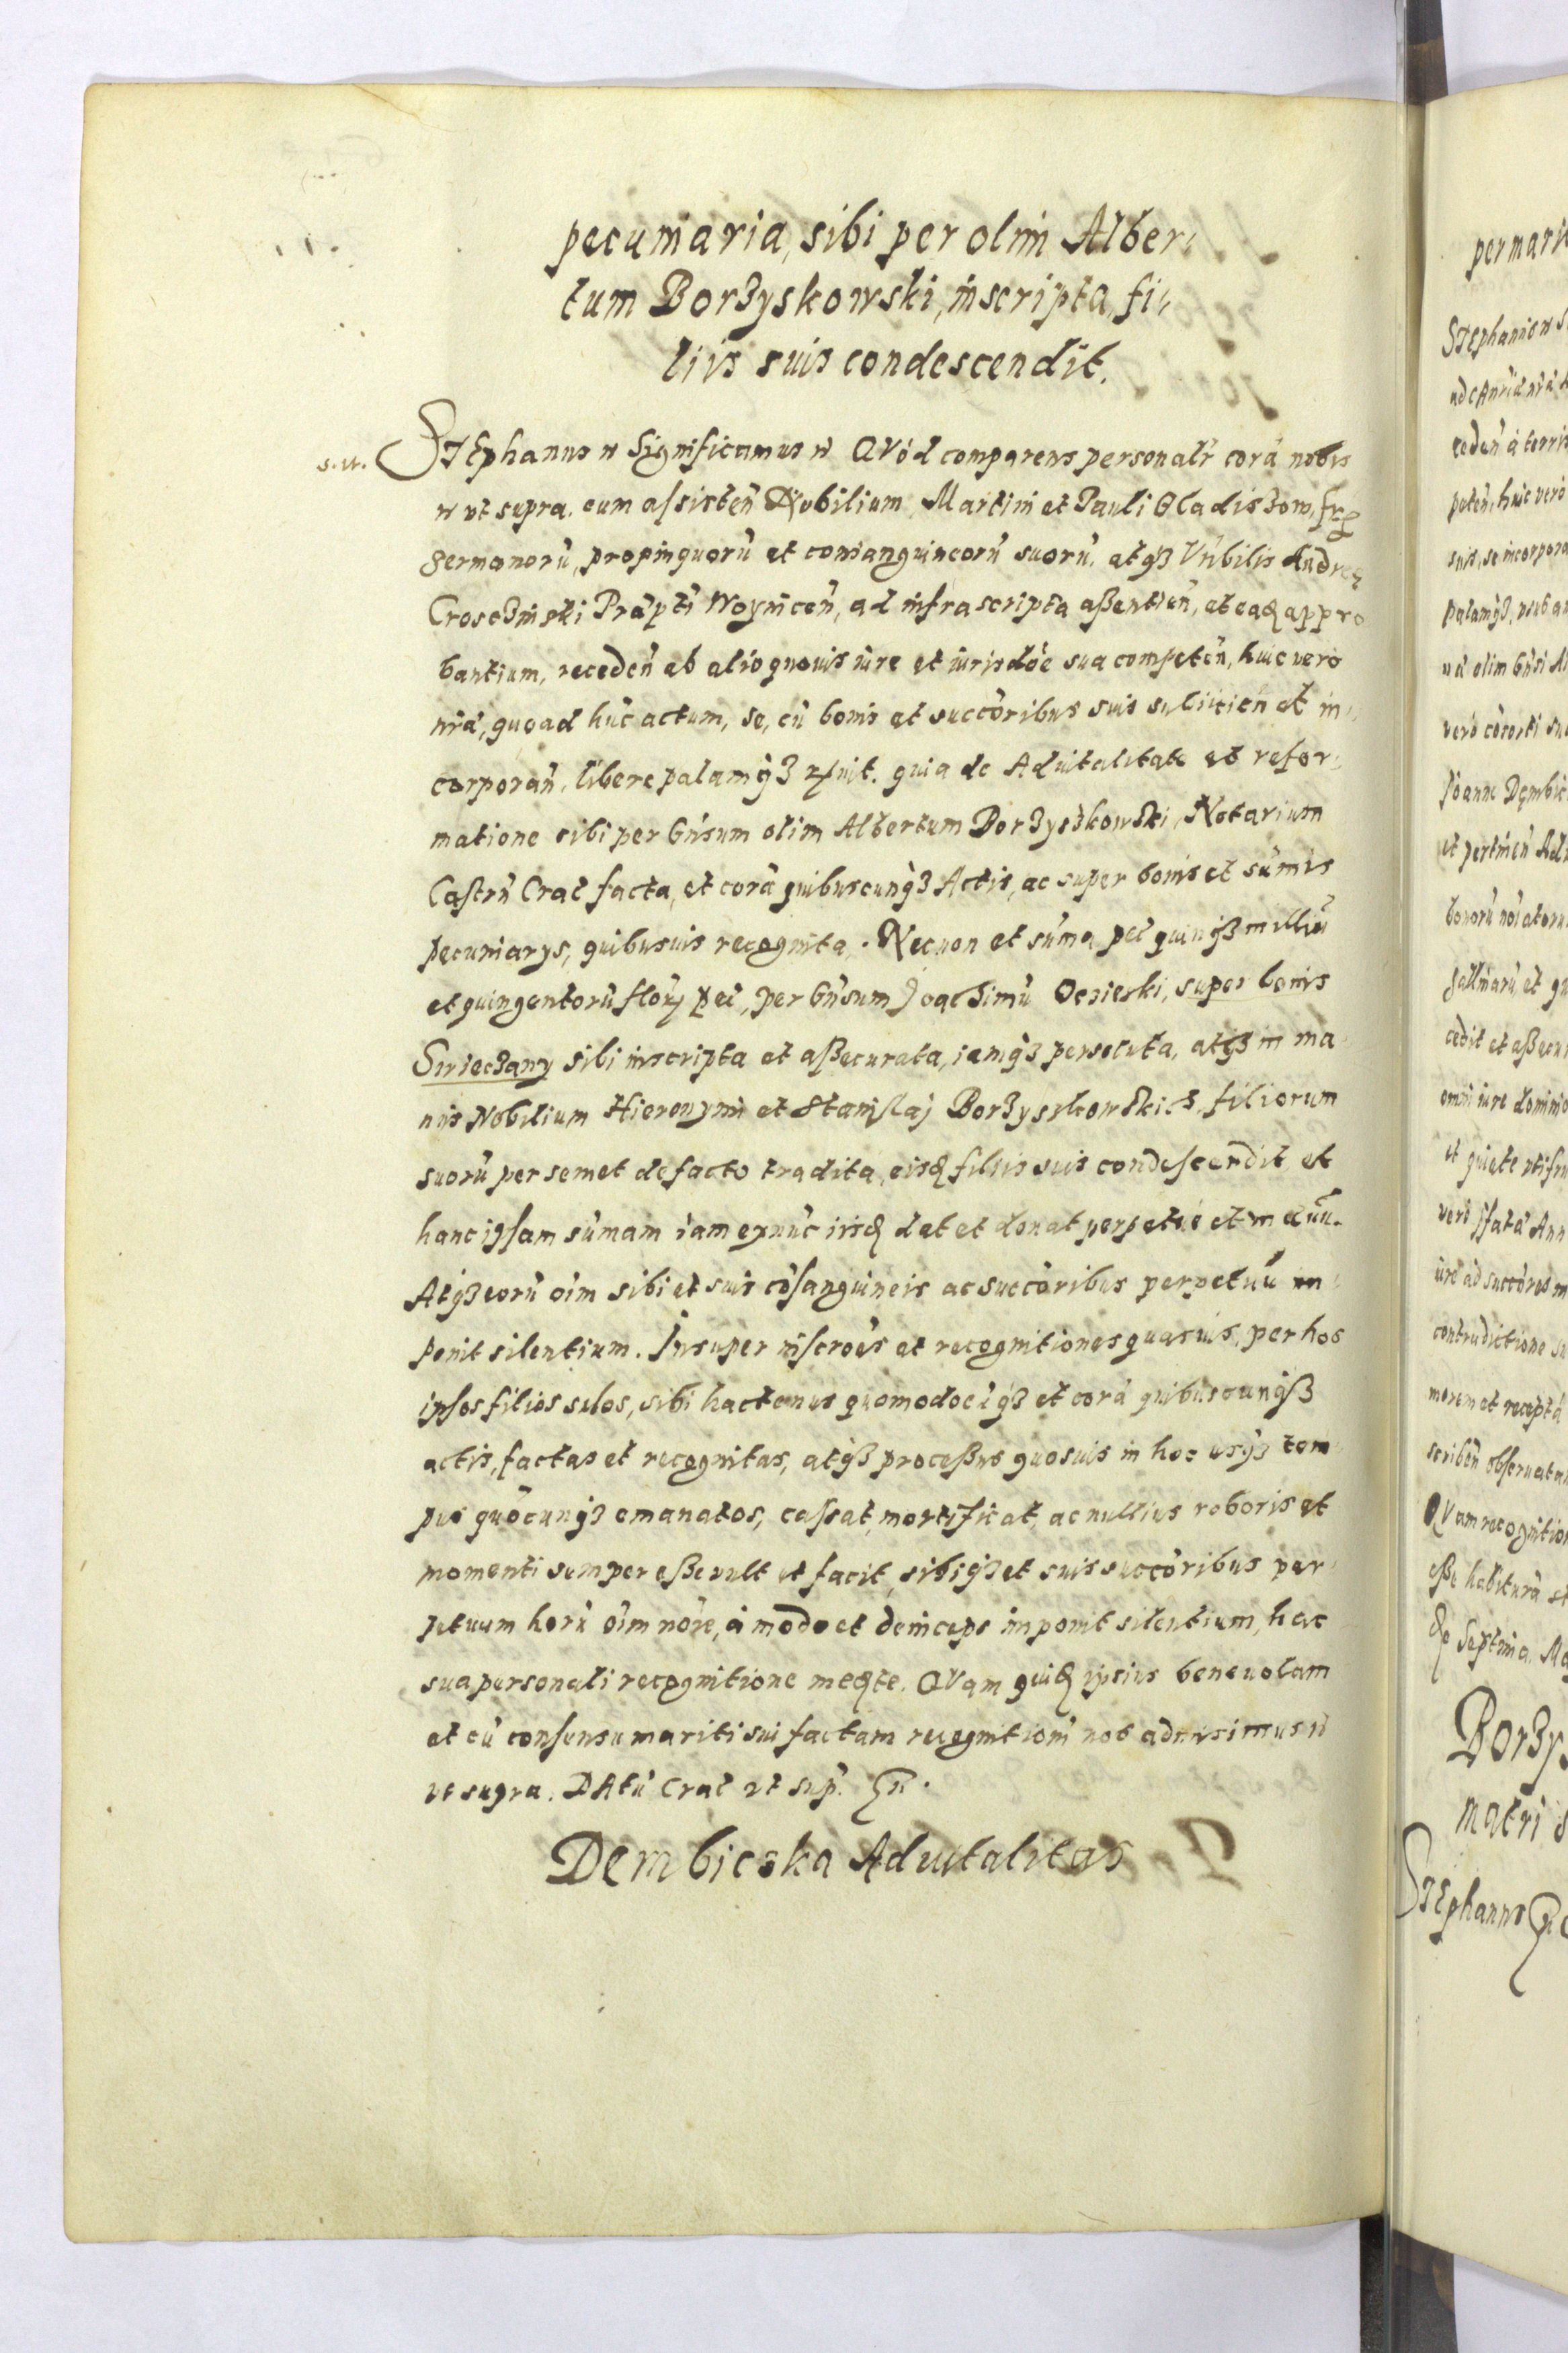 pecuniaria, sibi per olim Alber-
tum Borzyskowski, inscripta, fi-
liis suis condescendit.
s.n. STEphanus n Significamus n QVód comparens personalr corā nobis
n vt supra. cum assisten Nobilium Martini et Pauli Gladiszow, frp
germanorū, propinquorū et consanguineorū suorū. atq3 Vnbilis Andreę
Crosczinski Präpti Woynicen, ad infrascripta aßentien, et eaq appro
bantium, receden ab alio quouis iure et iurisdoe sua competen, huic vero
nrā, quoad hūc actum, se, cū bonis et succoribus suis subiicien et in-
corporan, libere palamq3 rfuit. quia de Aduitalitate et refor-
matione sibi per Gnsum olim Albertum Borzyszkowski, Notarium
Castrn Crac facta, et corā quibuscunq3 Actis, ac super bonis et sūmis
pecuniarys, quibusuis recognita. Necnon et sūma pec quinq3 milliū
et quingentorū flor pec, per Gnsum Joachimū Ocieski, super bonis
Swieczany sibi inscripta et aßecurata, iamq3 persoluta, atq3 in ma-
nus Nobilium Hieronymi et Stanislaj Borzyskowskich, filiorum
suorū per semet de facto tradita, eisq filiis suis condescendit et
hanc ipsam sūmam iam exnūc iisq dat et donat perpetue et in ęuū.
Atq3 eorū oim sibi et suis cōsanguineis ac succoribus perpetuū im-
ponit silentium. Insuper inscroes et recognitiones quasuis, per hos
ipsos filios suos, sibi hactenus quomodoc̄q3 et corā quibuscunq3
actis, factas et recognitas, atq3 proceßus quosuis in hoc usq3 tem-
pus quōcunq3 emanatos, cassat, mortificat, ac nullius roboris et
momenti semper eße vult et facit, sibiq3 et suis succoribus per-
petuum horū oim noie, a modo et deinceps imponit silentium, hac
sua personali recognitione meqte. QVam quiq ipsius beneuolam
et cū consensu mariti sui factam recognitionē nos admisimus n
vt supra. DAtū Crac vt sup. n.
Dembicska Aduitalitas
per mari
STEphanus n S
receden a terris
paten, huic vero
suis, se incorpora
palamq3,
nā olim Gnsi Al
vero cōsorti sua
Joanne Dęmbic
et pertinen Adu
bonorū
cedit et aßecur
omni iure dominio
et quiete
vero Ann
iure ad succores
contradictione su
morem et receptā
scriben obseruatam
QVam recognition
eße habiturā et
Septima. Ma
Borzys
matri s
STEphanus n